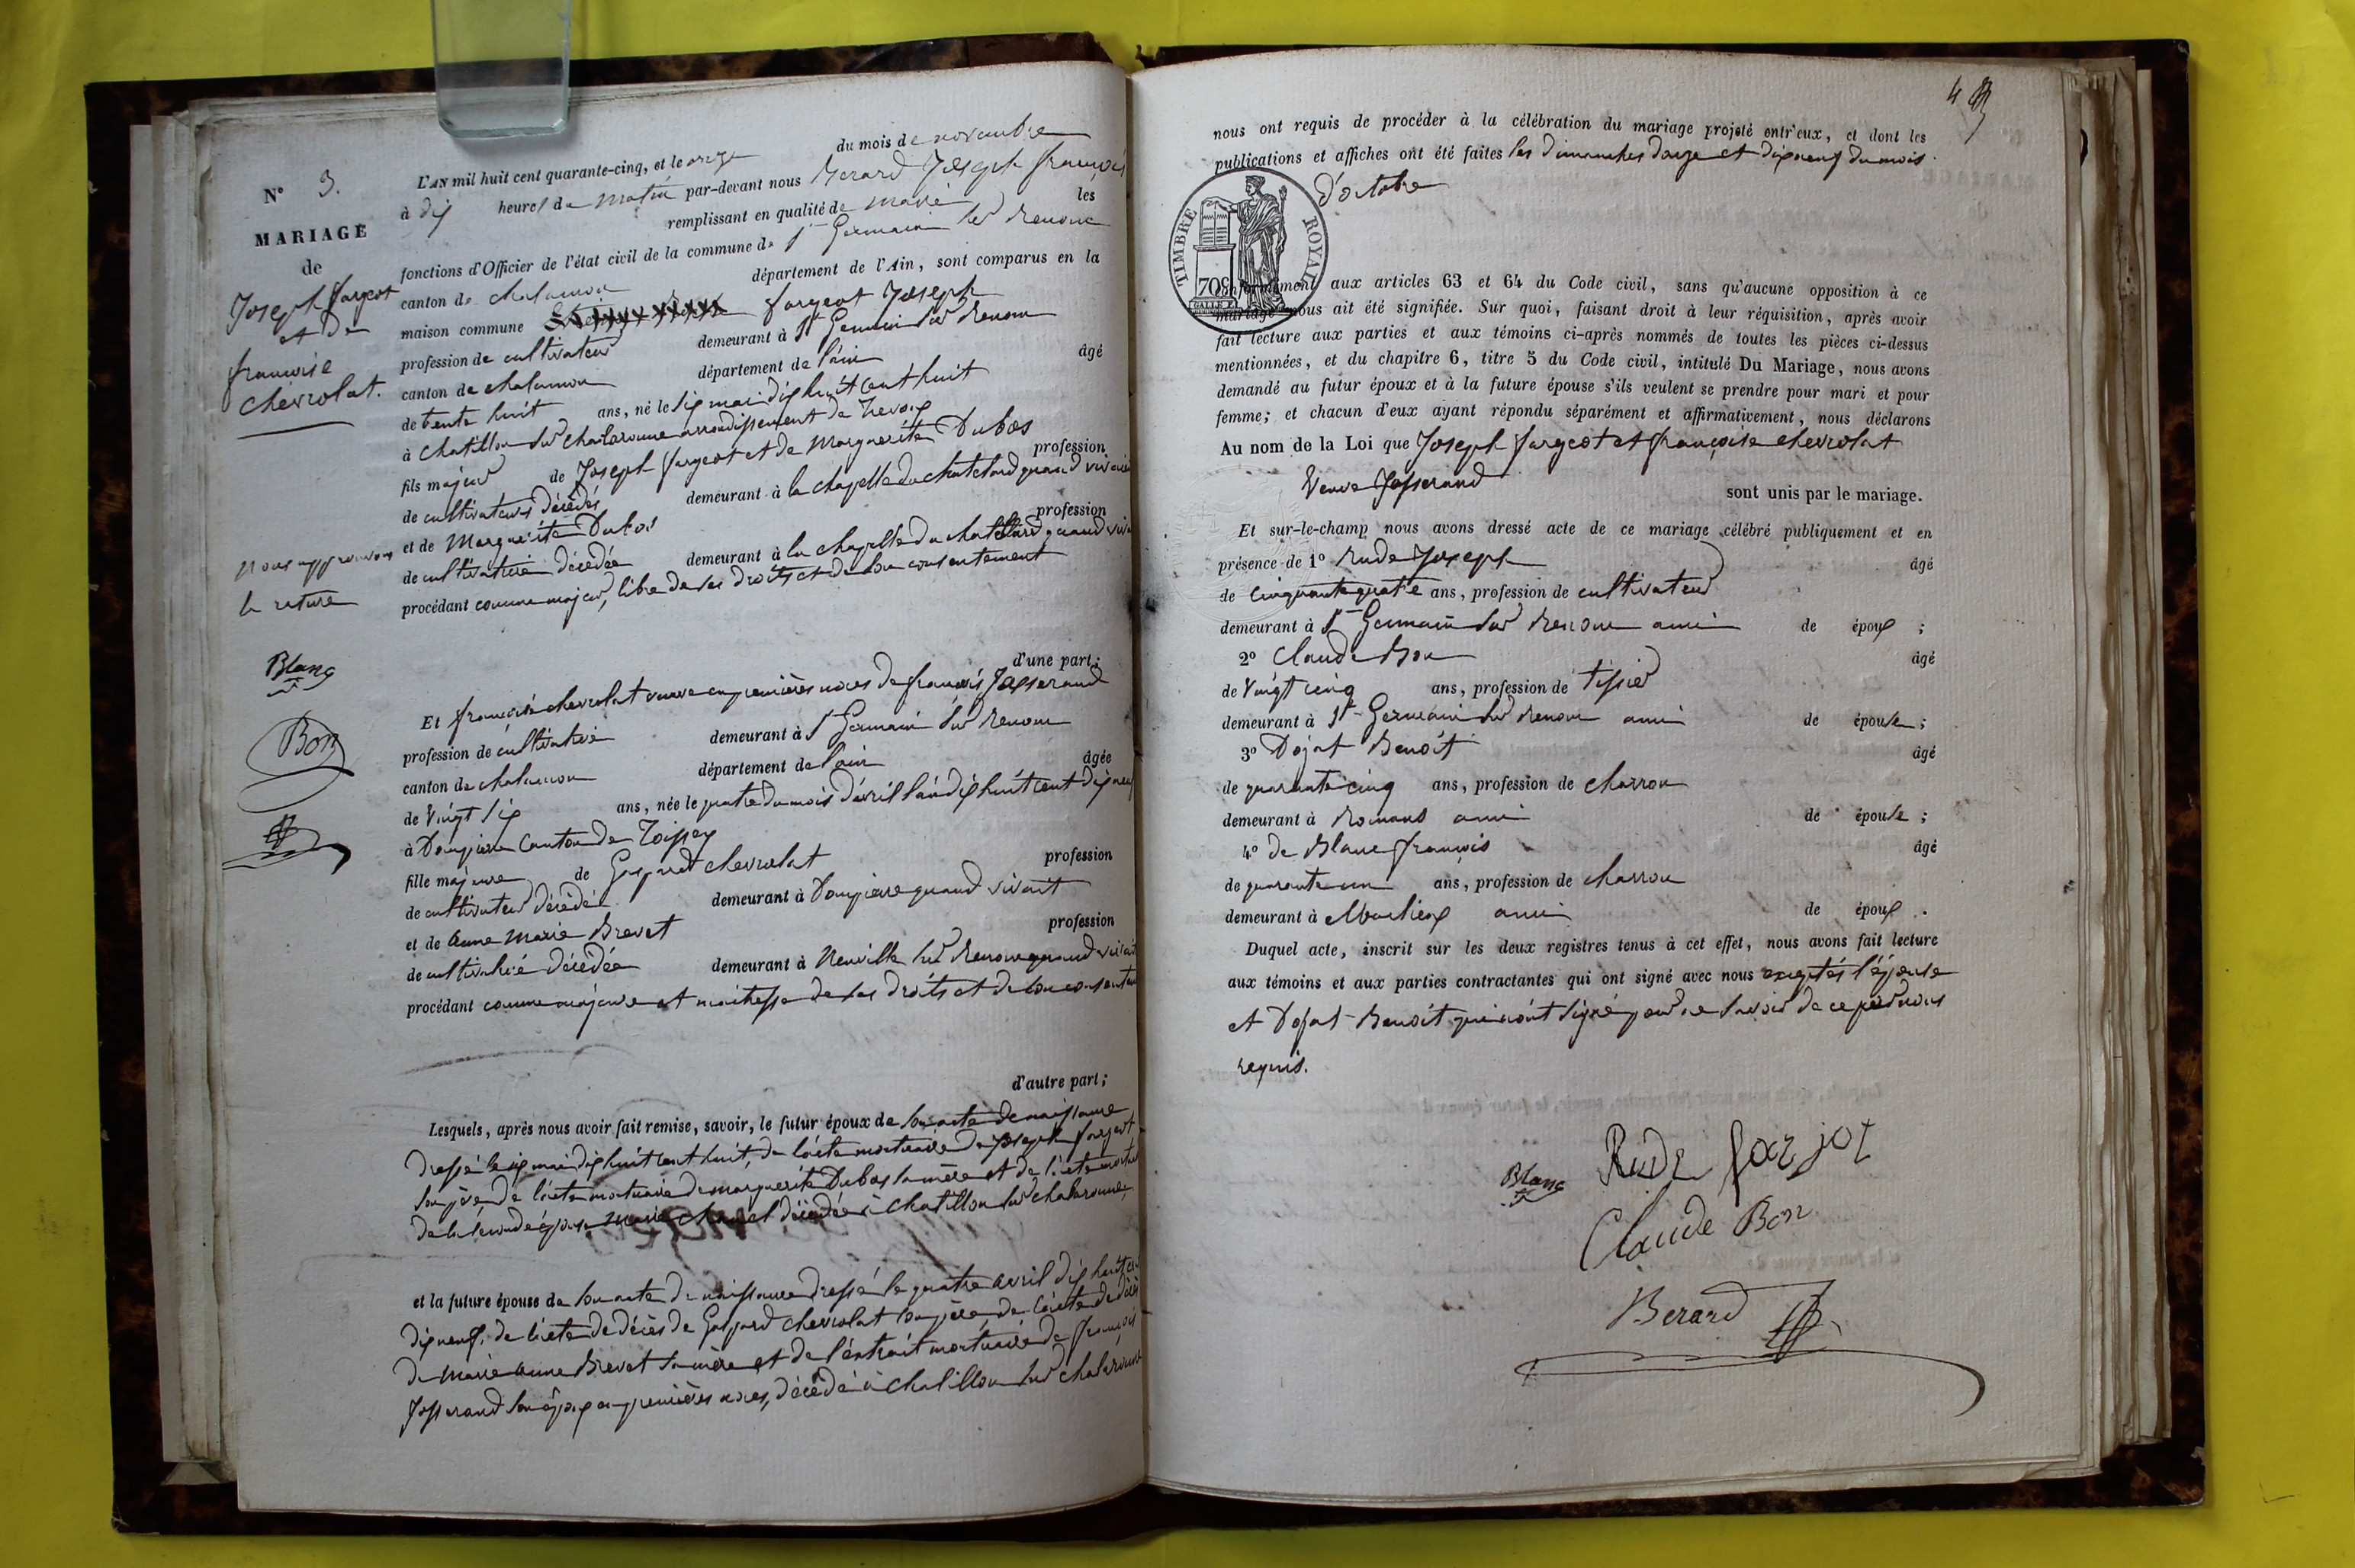 N° 3.
MARIAGE
de
Joseph fargeot
et de
françoise
chevrolat.
nous approuvons
la rature
Blanc
Bon
L'AN mil huit cent quarante-cinq, et le onze du mois de novembre
à dix heures du matin par-devant nous Berard Joseph françois
remplissant en qualité de maire les
fonctions d'Officier de l'état civil de la commune de St Germain sur Renom
canton de chalamon département de l'Ain, sont comparus en la
maison commune fargeot Joseph
profession de cultivateur demeurant à St Germain sur Renom
canton de chalamon département de l'ain âgé
de trente huit ans, né le six mai dix huit cent huit
à Chatillon sur chalaronne arrondissement de Trevoux
fils majeur de Joseph fargeot et de Marguerite Dubos profession
de cultivateurs décédés demeurant à la chapelle du chatelard quand vivaient
et de Marguerite Dubos profession
de cultivatrice décédée demeurant à la chapelle du chatelard quand vivait
procédant comme majeur, libre de ses droits et de son consentement
d'une part;
Et françoise chevrolat veuve en premières noces de françois Josserand
profession de cultivatrice demeurant à St Germain sur Renom
canton de chalamon département de l'ain âgée
de vingt six ans, née le quatre du mois d'avril l'an dix huit cent dix neuf
à Dompierre Canton de Toissey
fille majeure de Gaspard chevrolat profession
de cultivateur décédé demeurant à Dompierre quand vivait
et de Anne Marie Brevet profession
de cultivatrice décédée demeurant à Neuville sur Renom quand vivait
procédant comme majeure et maitresse de ses droits et de son consentement
d'autre part;
Lesquels, après nous avoir fait remise, savoir, le futur époux de son acte de naissance
dressé le six mai dix huit cent huit, de l'acte mortuaire de Joseph fargeot
son père de l'acte mortuaire de marguerite Dubos sa mère et de l'acte mortuaire
de la seconde épouse Marie décédée à Chatillon sur chalaronne,
et la future épouse de son acte de naissance dressé le quatre avril dix huit cent
dix neuf, de l'acte de décès de Gaspard chevrolat son père, de l'acte de décès
de Marie Anne Brevet sa mère et de l'extrait mortuaire de françois
Josserand son époux en premières noces, décédé à Chatillon sur chalaronne
4
nous ont requis de procéder à la célébration du mariage projeté entr'eux, et dont les
publications et affiches ont été faites les dimanches douze et dix neuf du mois
d'octobre
TIMBRE ROYAL
70c
conformément aux articles 63 et 64 du Code civil, sans qu'aucune opposition à ce
mariage nous ait été signifiée. Sur quoi, faisant droit à leur réquisition, après avoir
fait lecture aux parties et aux témoins ci-après nommés de toutes les pièces ci-dessus
mentionnées, et du chapitre 6, titre 5 du Code civil, intitulé Du Mariage, nous avons
demandé au futur époux et à la future épouse s'ils veulent se prendre pour mari et pour
femme; et chacun d'eux ayant répondu séparément et affirmativement, nous déclarons
Au nom de la Loi que Joseph fargeot et françoise chevrolat
Veuve Josserand sont unis par le mariage.
Et sur-le-champ nous avons dressé acte de ce mariage célébré publiquement et en
présence de 1° Rude Joseph âgé
de cinquante quatre ans, profession de cultivateur
demeurant à St Germain sur Renom ami de époux ;
2° Claude Bon âgé
de vingt cinq ans, profession de tissier
demeurant à St Germain sur Renom ami de épouse ;
3° Dojat Benoît âgé
de quarante cinq ans, profession de charron
demeurant à Romans ami de épouse ;
4° de Blanc françois âgé
de quarante un ans, profession de charron
demeurant à Marlieux ami de époux .
Duquel acte, inscrit sur les deux registres tenus à cet effet, nous avons fait lecture
aux témoins et aux parties contractantes qui ont signé avec nous exceptés l'épouse
et Dojat Benoît qui n'ont signé pour ne savoir de ce par nous
requis.
Blanc Rude farjot
Claude Bon
Berard